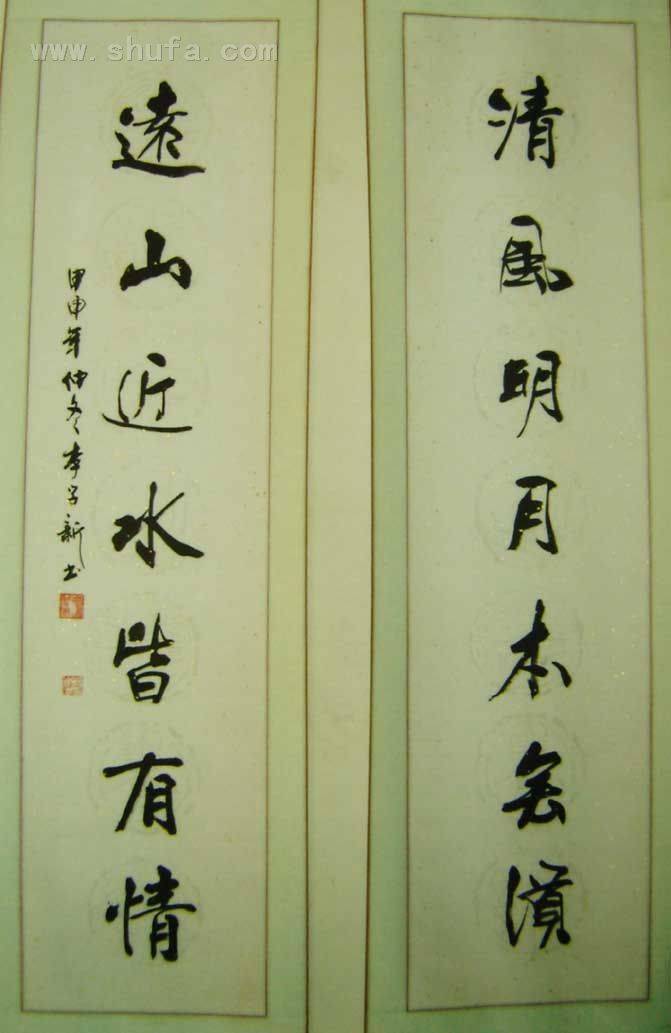 清風明月本無價
遠山近水皆有情
甲申年仲冬李子新书
www.shufa.com